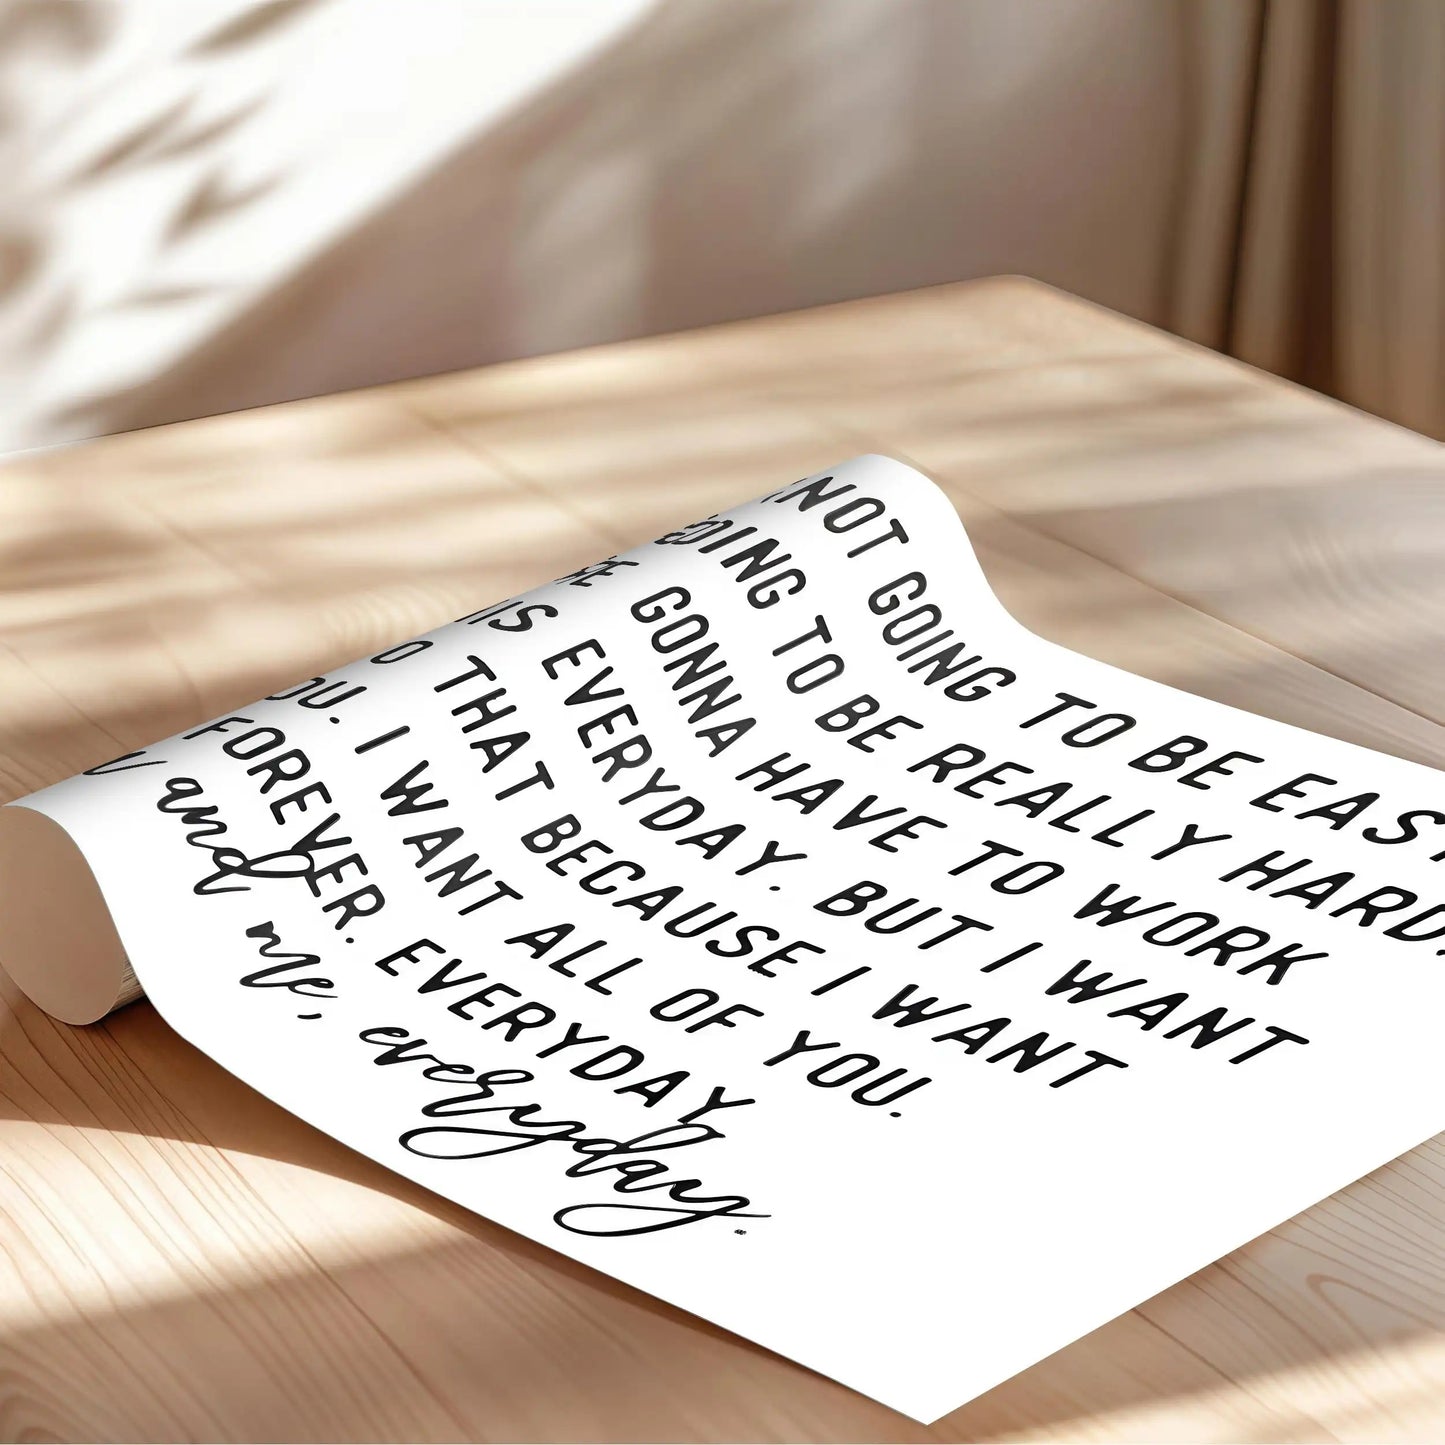 NOT GOING TO BE EASY
GOING TO BE REALLY HARD.
GONNA HAVE TO WORK
THIS EVERYDAY. BUT I WANT
THAT BECAUSE I WANT
YOU. I WANT ALL OF YOU.
FOREVER. EVERYDAY.
and me, everyday.